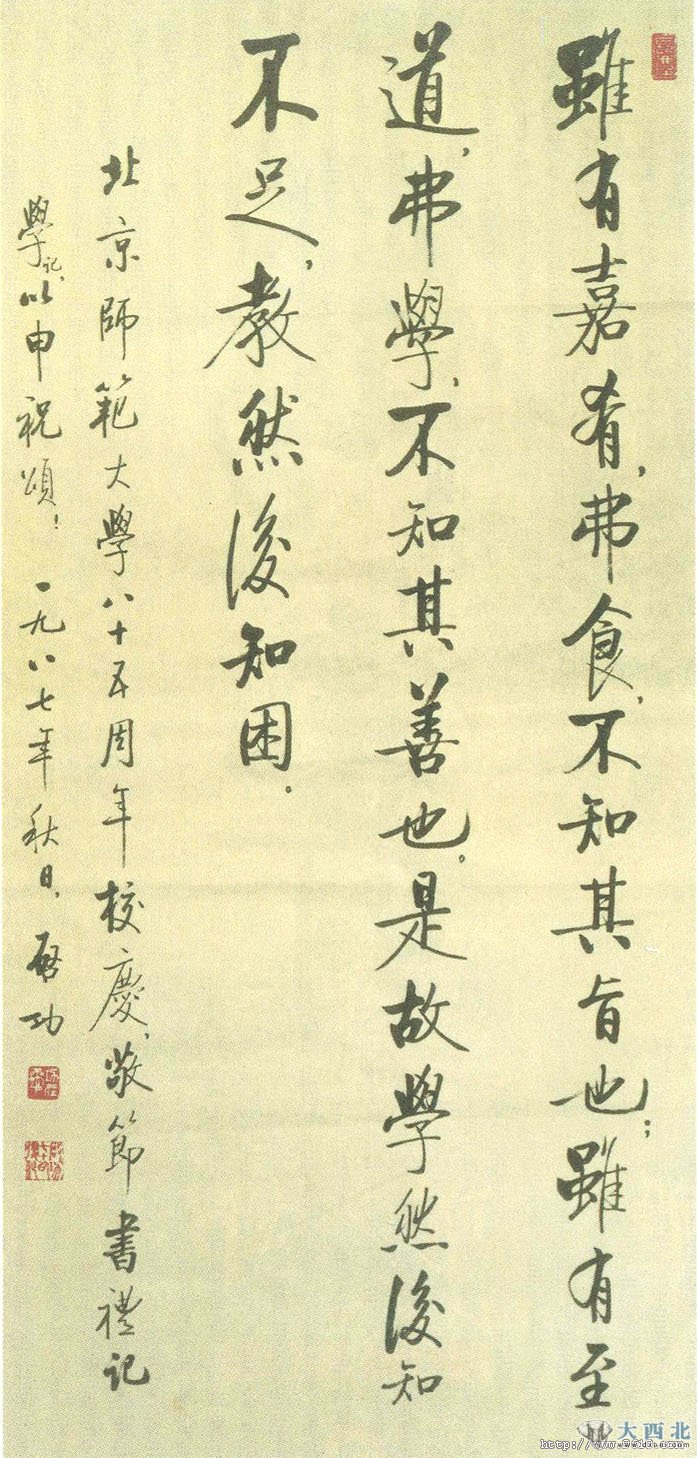 雖有嘉肴，弗食，不知其旨也；雖有至
道，弗學，不知其善也，是故學然後知
不足，教然後知困。
北京師範大學八十五周年校慶，敬節書禮記
學記，以申祝頌！一九八七年秋日，啓功
大西北